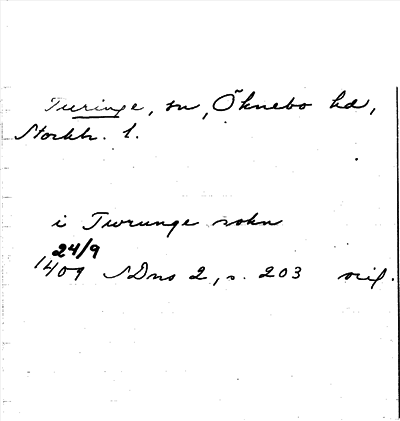 Turinge, sn, Öknebo hd,
Stockh. l.
i Twrunge sokn
24/9
1409 SDns 2, s. 203 orig.